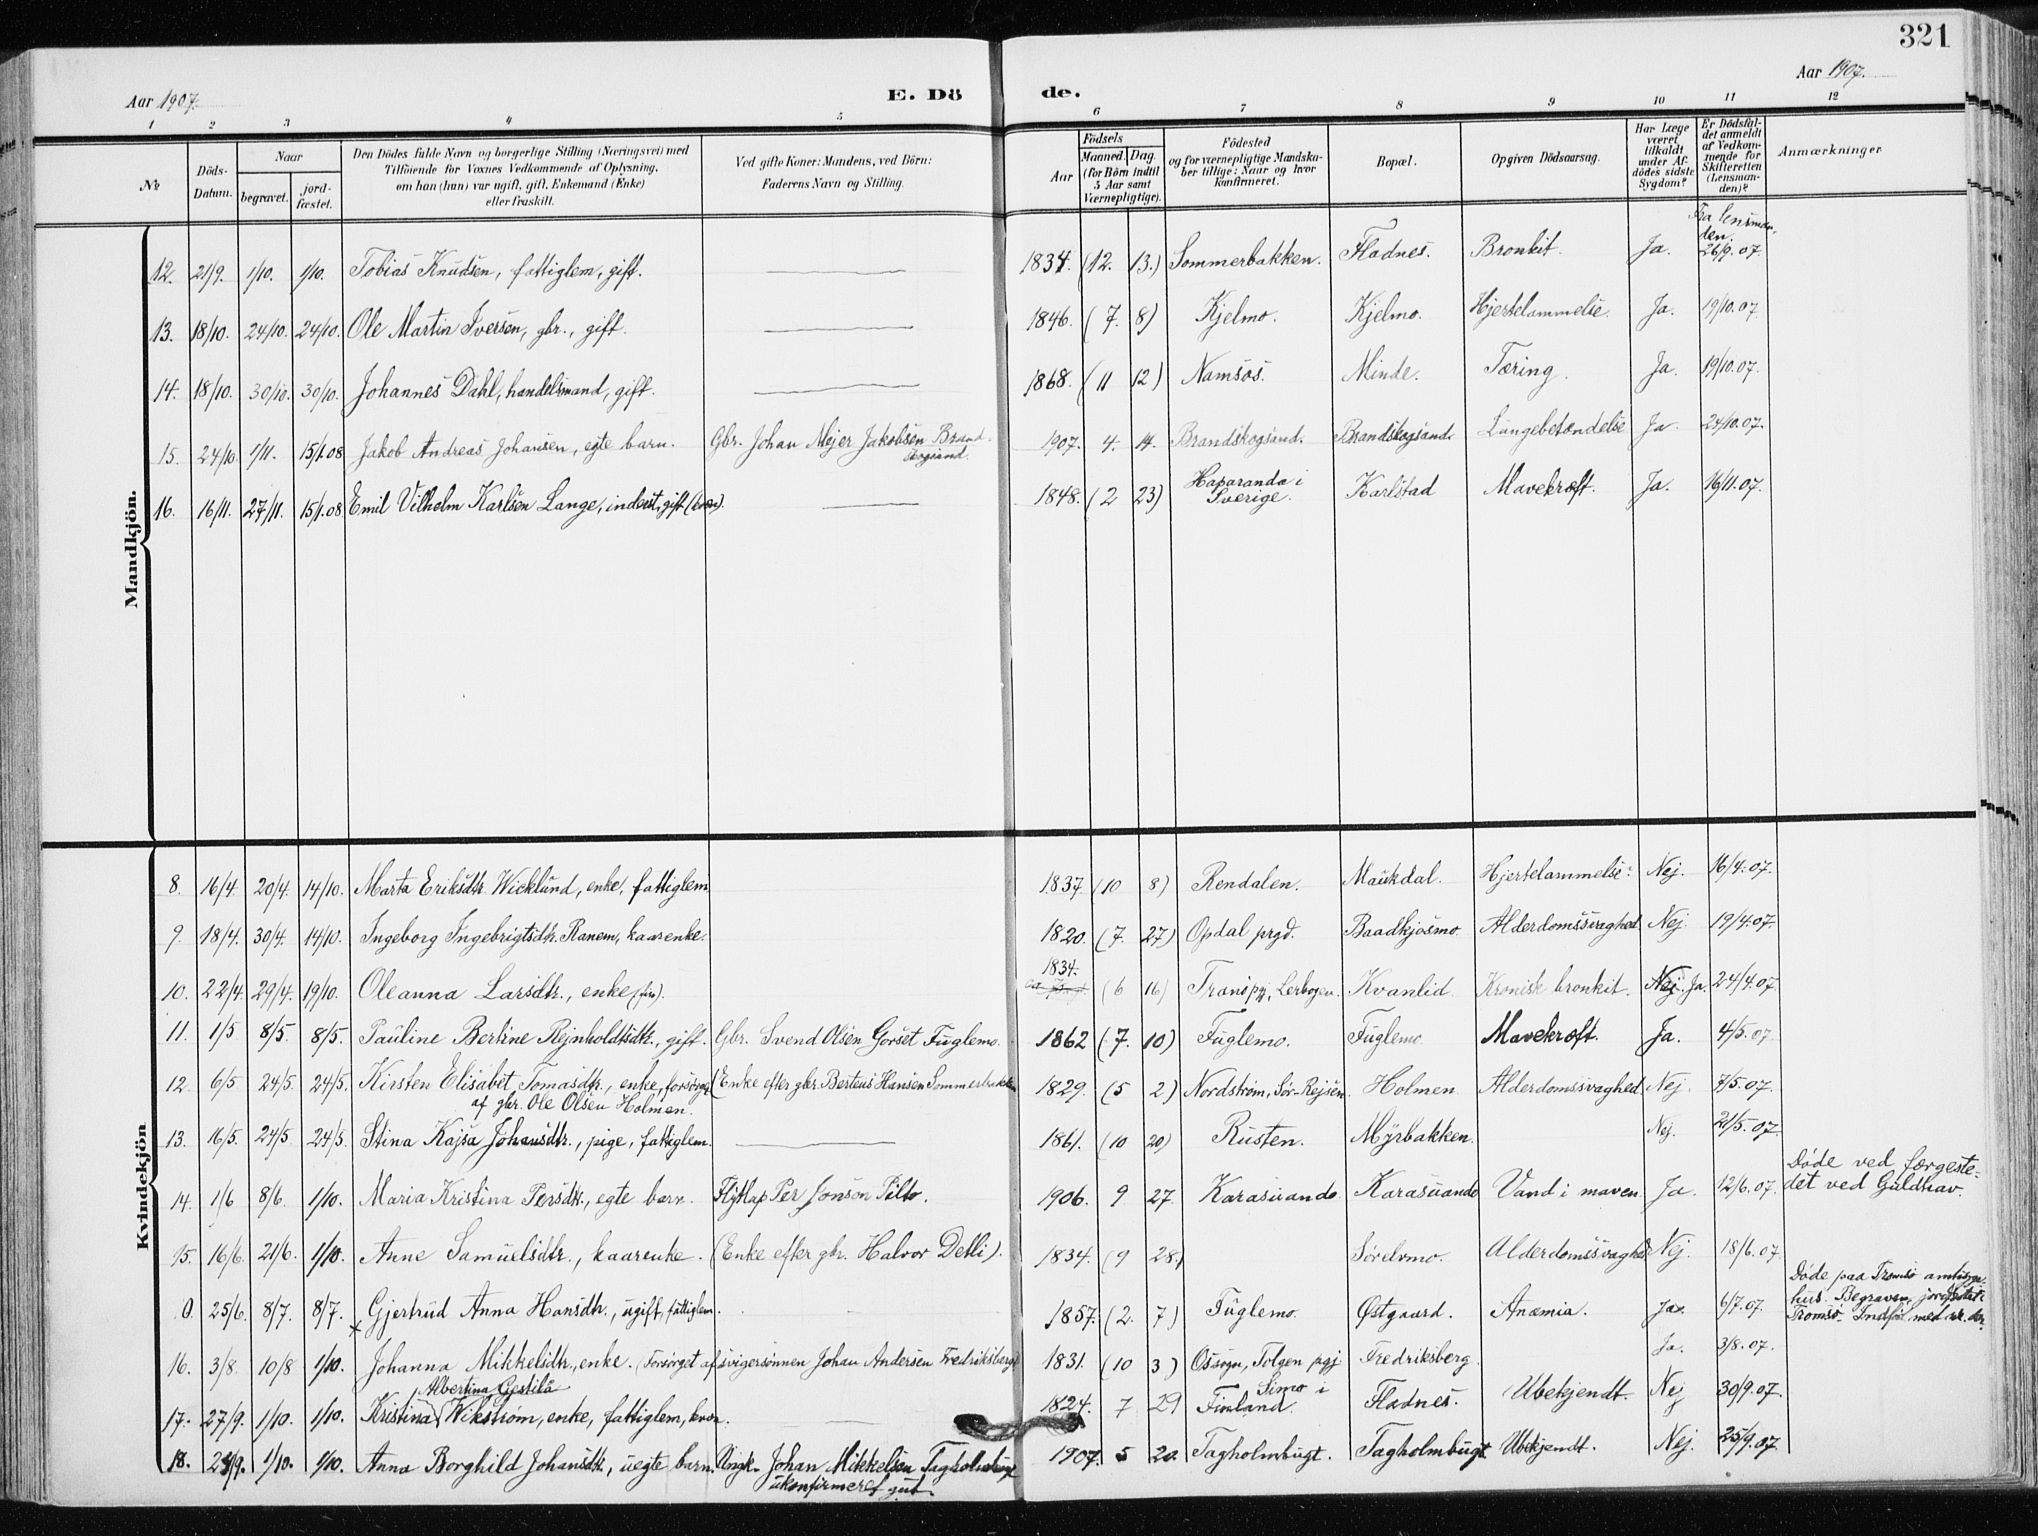 321
Aar 1907.
E. Dö
de.
Aar 1907.
1 2 3 4 5 6 7 8 9 10 11 12
No
Döds-
Datum.
Naar
begravet.
jord-
fæstet.
Den Dödes fulde Navn og borgerlige Stilling (Næringsvei) med
Tilföiende for Voxnes Vedkommende af Oplysning,
om han (hun) var ugift, gift, Enkemand (Enke)
eller fraskilt.
Ved gifte Koner: Mandens, ved Börn:
Faderens Navn og Stilling.
Födsels
Aar
Maaned. Dag.
(for Börn indtil
5 Aar samt
Værnepligtige).
Födested
og for værnepligtige Mandska-
ber tillige: Naar og hvor
konfirmeret.
Bopæl.
Opgiven Dödsaarsag.
Har Læge
været
tilkaldt
under Af-
dödes sidste
Sygdom?
Er Dödsfal-
det anmeldt
af Vedkom-
mende for
Skifteretten
(Lensman-
den)?
Anmærkninger
Mandkjön.
Fra lensman-
den.
12. 21/9. 1/10. 1/10. Tobias Knudsen, fattiglem, gift. 1834. (12. 13.) Sommerbakken. Fladnes. Bronkit. Ja. 26/9. 07.
13. 18/10. 24/10. 24/10. Ole Martin Iversen, gbr., gift. 1846. (7. 8) Kjelmo. Kjelmo. Hjertelammelse. Ja. 19/10. 07.
14. 18/10. 30/10. 30/10. Johannes Dahl, handelsmand, gift. 1868. (11 12) Namsos. Minde. Tæring. Ja. 19/10. 07.
15. 24/10 1/11. 15/1.08 Jakob Andreas Johansen, egte barn. Gbr. Johan Mejer Jakobsen Brand-
skogsand. 1907. 4. 14. Brandskogsand. Brandskogsand. Lungebetændelse Ja 24/10. 07.
16. 16/11. 27/11. 15/1.08 Emil Vilhelm Karlsen Lange, inderst, gift (kvæn). 1848. (2 23) Haparanda i
Sverige. Karlstad Mavekræft. Ja. 16/11. 07.
Kvindekjön
8. 16/4. 20/4. 14/10. Marta Eriksdtr. Wicklund, enke, fattiglem 1837. (10 8) Rendalen. Maukdal. Hjertelammelse. Nej. 16/4. 07.
9. 18/4. 30/4. 14/10. Ingeborg Ingebrigtsdtr. Ranem, kaarenke. 1820. (7. 27) Opdal prgd. Baadkjosmo. Alderdomssvaghed Nej. 19/4. 07.
10. 22/4. 29/4. 19/10. Oleanna Larsdtr., enke. 1834. (6 16) Tranö pgj, Lerbogen. Kvanlid. Kronisk bronkit. Nej. Ja. 24/4. 07.
11. 1/5 8/5. 8/5. Pauline Bertine Rejnholdtsdtr., gift. Gbr. Svend Olsen Gorset Fuglemo. 1862 (7. 10) Fuglemo. Fuglemo Mavekræft. Ja. 4/5. 07
12. 6/5 24/5. 24/5. Kirsten Elisabet Tomasdtr., enke, forsørget
af gbr. Ole Olsen Holmen. (Enke efter gbr. Berteus Hansen Sommerbakken 1829. (5 2) Nordstrøm, Sör-Rejsen Holmen Alderdomssvaghed. Nej. 7/5. 07.
13. 16/5. 24/5 24/5. Stina Kajsa Johansdtr., pige, fattiglem. 1861. (10 20) Rusten. Myrbakken. Nej. 21/5. 07.
14. 1/6 8/6. 1/10. Maria Kristina Persdtr., egte barn. Flytlap Per Jonson Pilto. 1906. 9 27. Karasuando Karasuando Vand i maven Ja. 12/6. 07. Døde ved færgeste-
det ved Guldhav.
15. 16/6. 21/6. 1/10. Anne Samuelsdtr., kaarenke. (Enke efter gbr. Halvor Detli). 1834. (9 28.) Sörelvmo. Alderdomssvaghed Nej. 18/6. 07
0. 25/6. 8/7. 8/7. Gjertrud Anna Hansdtr., ugift, fattiglem. 1857. (2. 7) Fuglemo. Østgaard. Anæmia. Ja. 6/7. 07. Døde paa Tromsö amtssyge-
hus. Begraven, jordfæstet:
Tromsö.
16. 3/8. 10/8 1/10. Johanna Mikkelsdtr., enke. (Forsörget af svigersönnen Johan Andersen Fredriksberg) 1831. (10 3) Os sogn, Tolgen pgj. Fredriksberg. Ja. 3/8. 07.
17. 27/9. 1/10. 1/10. Kristina Albertina Gestila Wikström, enke, fattiglem, kvæn. 1824. 7 29 Simo i
Finland. Fladnes. Ubekjendt. Nej 30/9. 07.
18. 1/10. 1/10. Anna Borghild Johansdtr., uegte barn. Ungk. Johan Mikkelsen Tagholmbugt
ukonfirmeret gut. 1907. 5 20. Tagholmbugt. Tagholmbugt. Ubekjendt. Nej. 25/9. 07